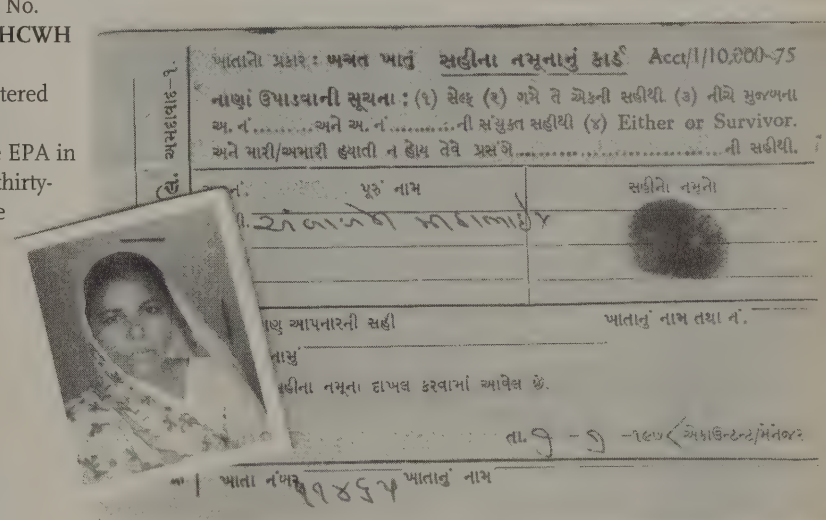 No.
HCWH
tered
e EPA in
thirty-
e
અમદાવાદ-૧.
ખાતાનો પ્રકાર : બચત ખાતું સહીના નમૂનાનું કાર્ડ Acct/1/10,000-75
નાણાં ઉપાડવાની સૂચના : (૧) સેલ્ફ (૨) ગમે તે એકની સહીથી (૩) નીચે મુજબના
અ. નં.........અને અ. નં..........ની સંયુક્ત સહીથી (૪) Either or Survivor.
અને મારી/અમારી હયાતી ન હોય તેવે પ્રસંગે............................ની સહીથી.
નં. પૂરું નામ સહીનો નમૂનો
આપનારની સહી ખાતાનું નામ તથા નં.
સહીના નમૂના દાખલ કરવામાં આવેલ છે.
તા. ૭ - ૭ -૧૯૭ એકાઉન્ટન્ટ/મેનેજર
ખાતા નંબર ૧૧૪૬૫ ખાતાનું નામ